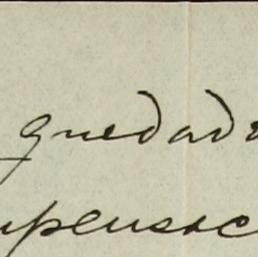 quedad
upensac